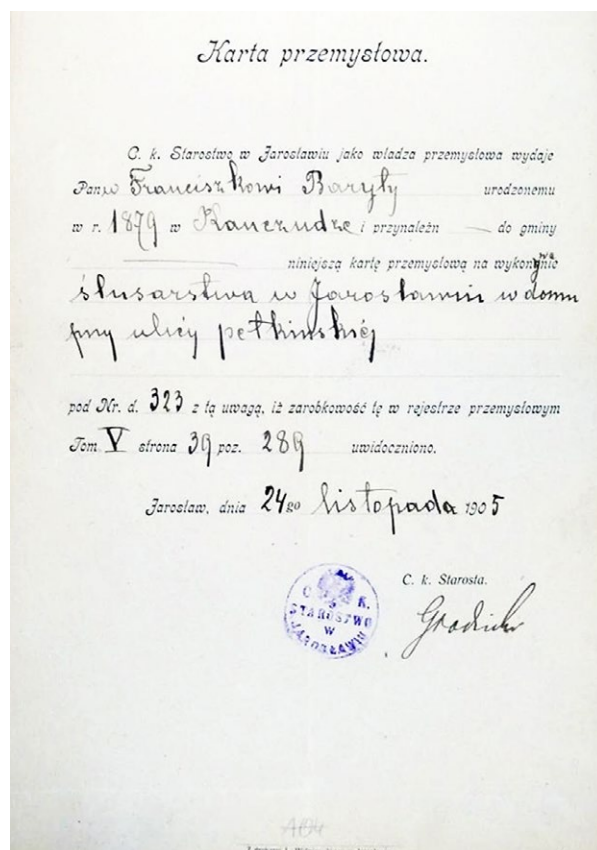 Karta przemysłowa.
C. k. Starostwo w Jarosławiu jako władza przemysłowa wydaje
Panu Franciszkowi Baryły urodzonemu
w r. 1879 w Kańczudze i przynależn — do gminy
niniejszą kartę przemysłową na wykonywanie
ślusarstwa w Jarosławiu w domu
przy ulicy pełkinskiej
pod Nr. d. 323 z tą uwagą, iż zarobkowość tę w rejestrze przemysłowym
Tom V strona 39 poz. 289 uwidoczniono.
Jarosław, dnia 24go listopada 1905
C. k. Starosta.
C. K.
STAROSTWO
W
JAROSŁAWIU